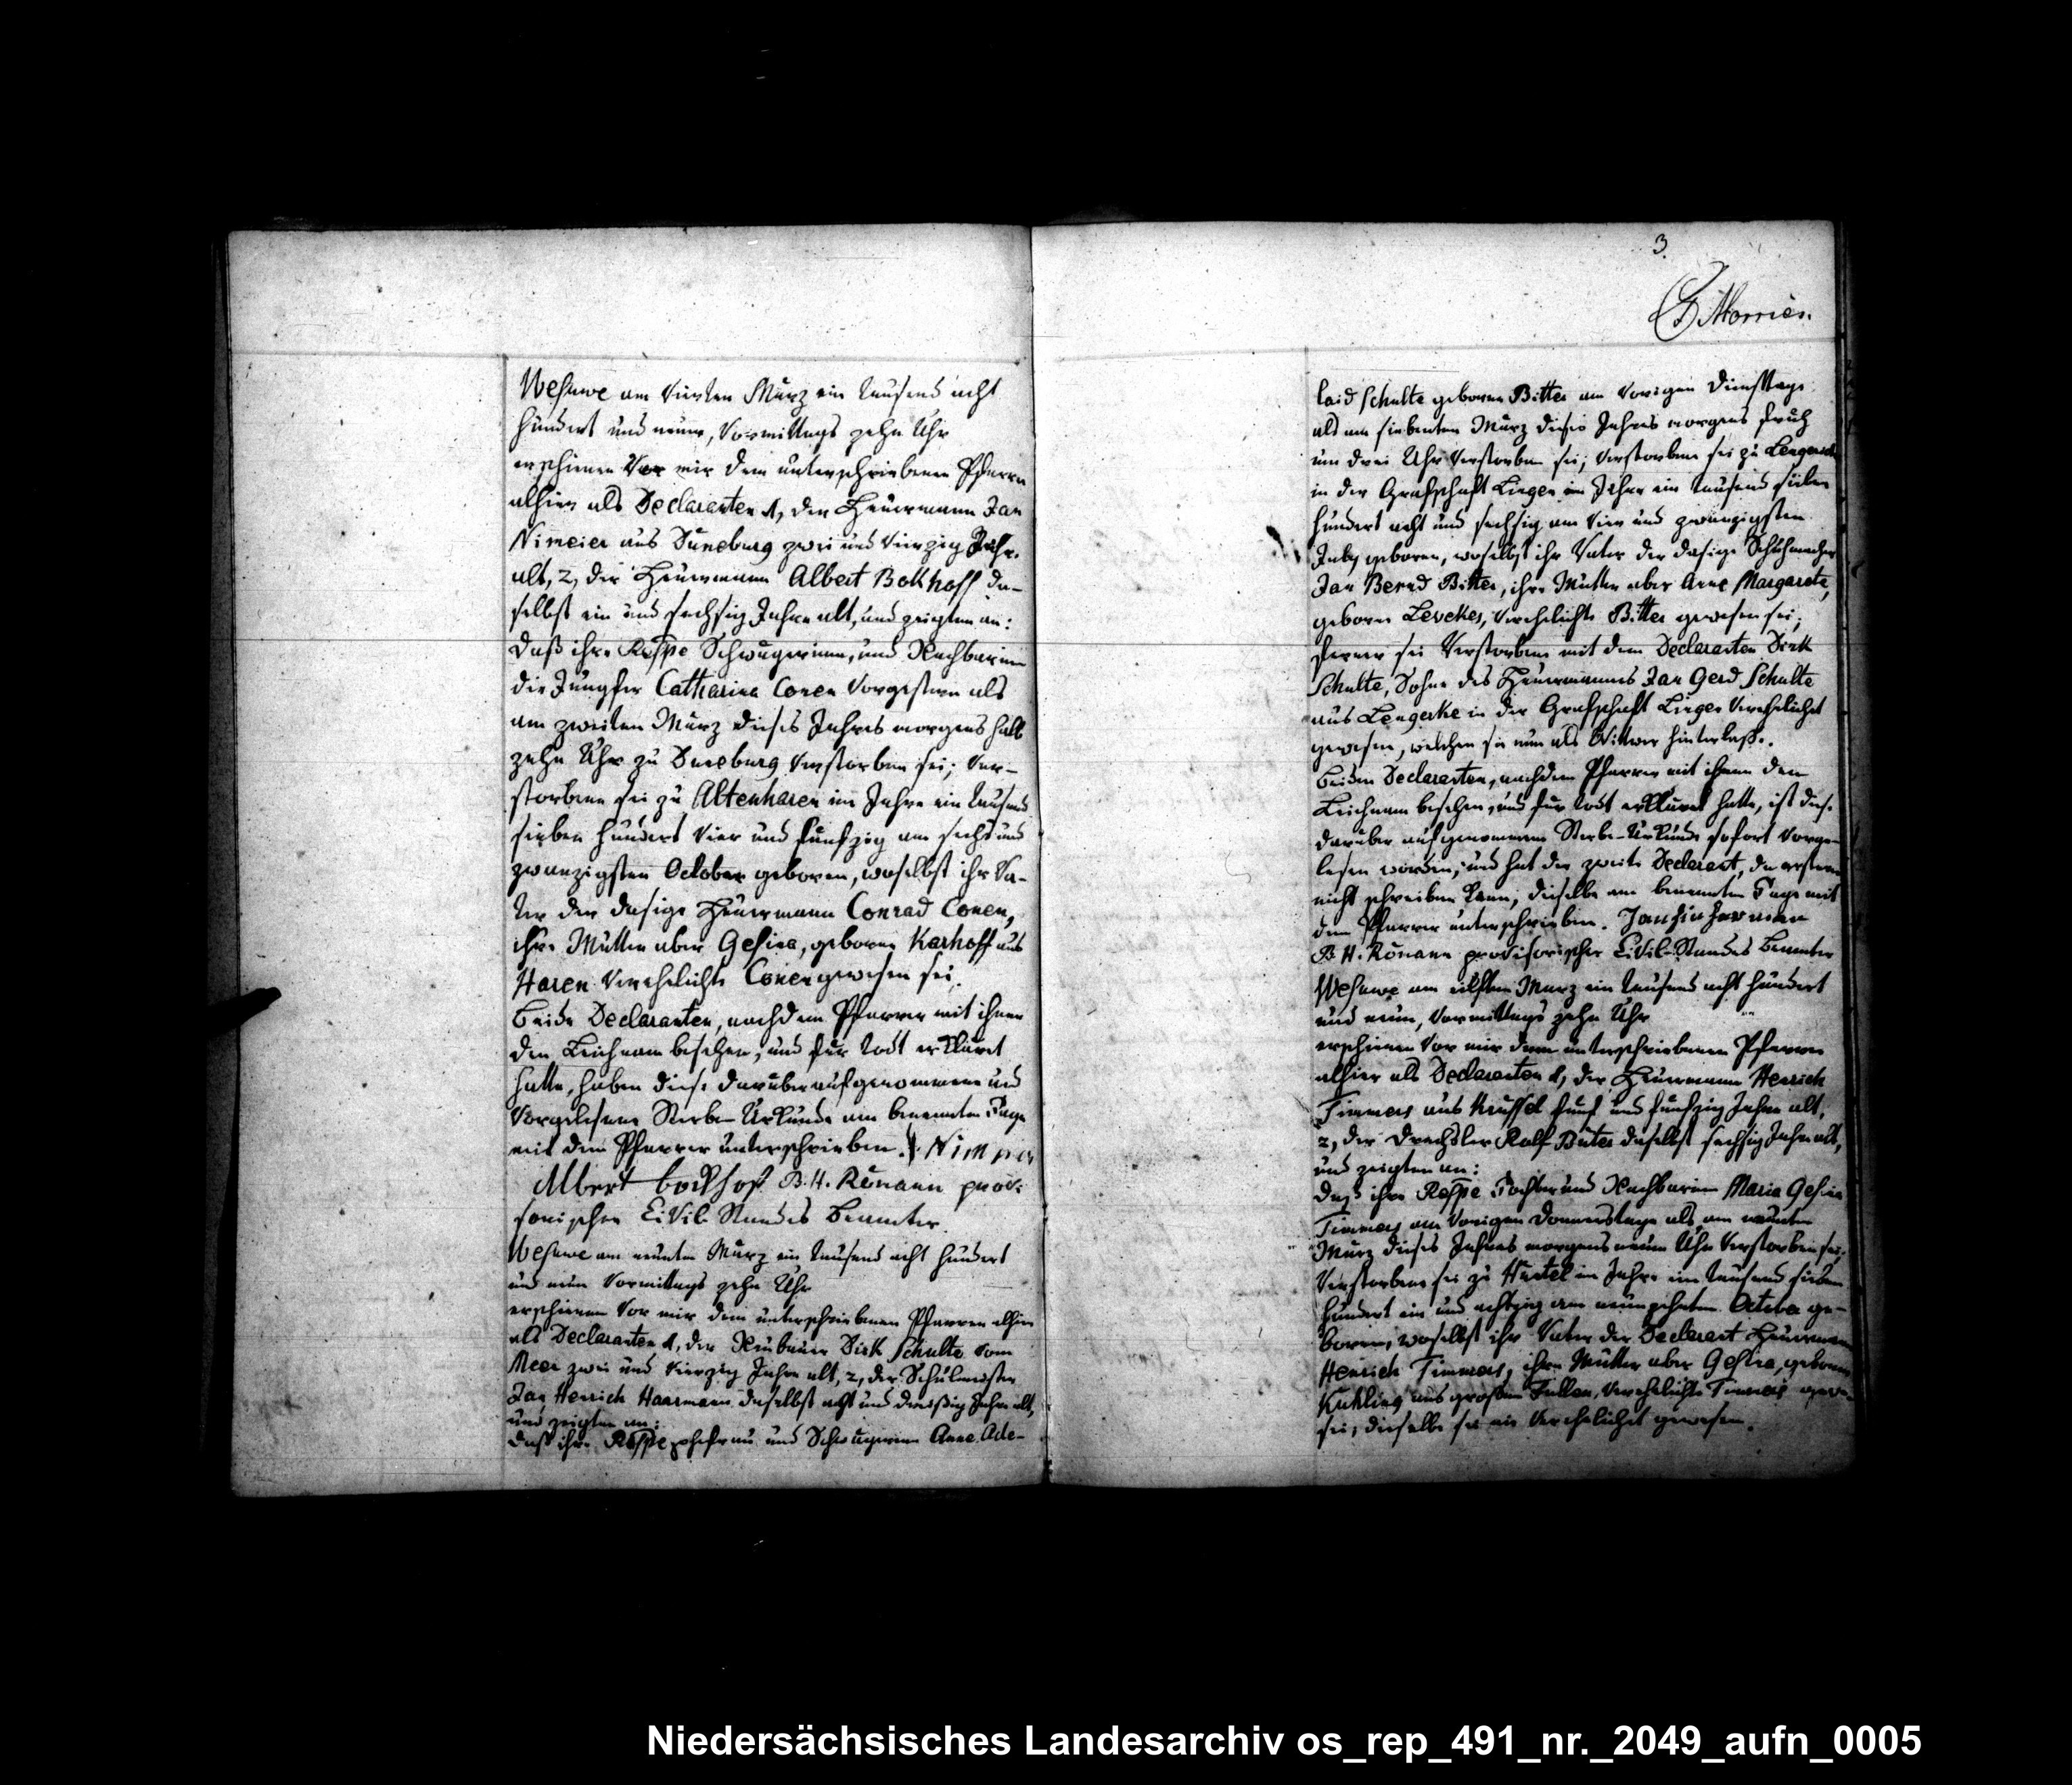 Wesuwe am vierten Märtz ein tausend acht
hundert und neun, Vormittags zehn Uhr
erschienen vor mir dem unterschriebenen Pfarrer
alhier als Declaranten 1, der Heuermann Jan
Nimeier aus Düneburg zwei und vierzig Jahr
alt, 2, der Heuermann Albert Bokhoff da-
selbst ein und sechsig Jahre alt, und zeigten an:
daß ihre Respe Schwägerinn, und Nachbarinn
die Jungfer Catharina Conen vorgestern als
am zweiten Märtz dieses Jahres morgens halb
zehn Uhr zu Duneburg verstorben sei; Ver-
storbene sei zu Altenharen im Jahre ein tausend
sieben hundert vier und funfzig am sechs und
zwanzigsten October geboren, woselbst ihr Va-
ter der dasige Heuermann Conrad Conen,
ihre Mutter aber Gesina, geborne Karhoff aus
Haren verehelichte Conen gewesen sei.
Beide Declaranten, nachdem Pfarrer mit ihnen
den Leichnam besehen, und fur todt erkläret
hatte, haben diese daruber aufgenommene und
vorgelesene Sterbe-Urkunde am benennten Tage
mit dem Pfarrer unterschrieben. J. Nimeier
Albert bockhof B. H. Rönann provi-
sorischer Civil-Standes Beamter.
Wesuwe am neunten Märtz ein tausend acht hundert
und neun Vormittags zehn Uhr
erschienen vor mir dem unterschriebenen Pfarrer alhier
als Declaranten 1, der Neubauer Dirk Schulte vom
Meer zwei und vierzig Jahre alt, 2, der Schulmeister
Jan Henrich Haarmann daselbst acht und dreissig Jahre alt,
und zeigten an:
daß ihre Respe Ehefrau und Schwägerinn Anne Ade-
3.
Morriés.
laid Schulte geborne Bitter am vorigen Dienstage
als am siebenten Märtz dieses Jahres morgens fruh
um drei Uhr verstorben sei; Verstorbene sei zu Lengerich
in der Grafschaft Lingen im Jahre ein tausend sieben
hundert acht und sechsig am vier und zwanzigsten
July geboren, woselbst ihr Vater der dasige Schuhmacher
Jan Bernd Bitter, ihre Mutter aber Anne Margareta,
geborne Levekes, verehelichte Bitter gewesen sei;
ferner sei Verstorbene mit dem Declaranten Dirk
Schulte, Sohne des Heuermannes Jan Gerd Schulte
aus Lengerke in der Grafschaft Lingen verehelichet
gewesen, welchen sie nun als Wittwer hinterlasse.
Beiden Declaranten, nachdem Pfarrer mit ihnen den
Leichnam besehen, und fur todt erkläret hatte, ist diese
daruber aufgenommene Sterbe-Urkunde sofort vorge-
lesen worden; und hat der zweite Declarant, da ersterer
nicht schreiben kann, dieselbe am benennten Tage mit
dem Pfarrer unterschrieben. Jan hin harman
B. H. Rönann provisorischer Civil-Standes Beamter
Wesuwe am eilften Martz ein tausend acht hundert
und neun, Vormittags zehn Uhr
erschienen vor mir dem unterschriebenen Pfarrer
alhier als Declaranten 1, der Heuermann Henrich
Timmers aus funf und funfzig Jahre alt,
2, der Drechsler Rolf Büter daselbst sechsig Jahre alt,
und zeigten an:
daß ihre Respe Tochter und Nachbarinn Maria Gesina
Timmers am vorigen Donnerstage als am neunten
Märtz dieses Jahres morgens neun Uhr verstorben sei;
Verstorbene sei zu im Jahre ein tausend sieben
hundert ein und achtzig am neunzehnten October ge-
boren, woselbst ihr Vater der Declarant Heuermann
Henrich Timmers, ihre Mutter aber Gesina, geborne
aus grossen Fullen, verehelichte Timmers gewesen
sei; dieselbe sei nie verehelichet gewesen.
Niedersächsisches Landesarchiv os_rep_491_nr._2049_aufn_0005